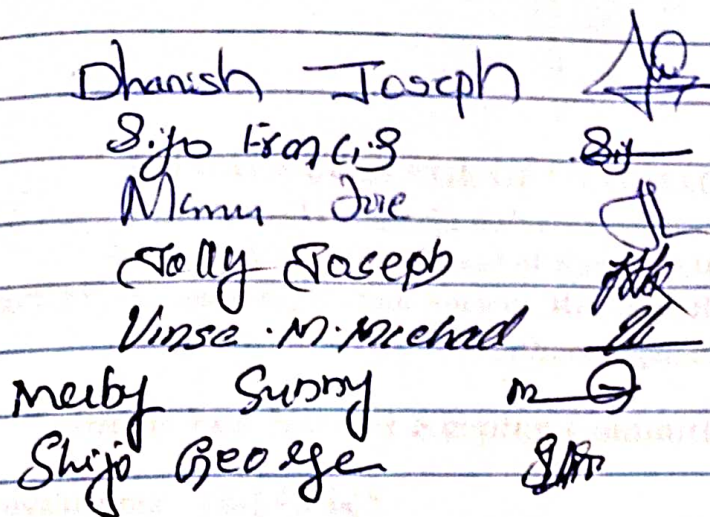 Dhanish Joseph
Sijo Francis
Manu Joe
Jolly Joseph
Vinse.M.Michael
Meuby Sunny
Shijo George